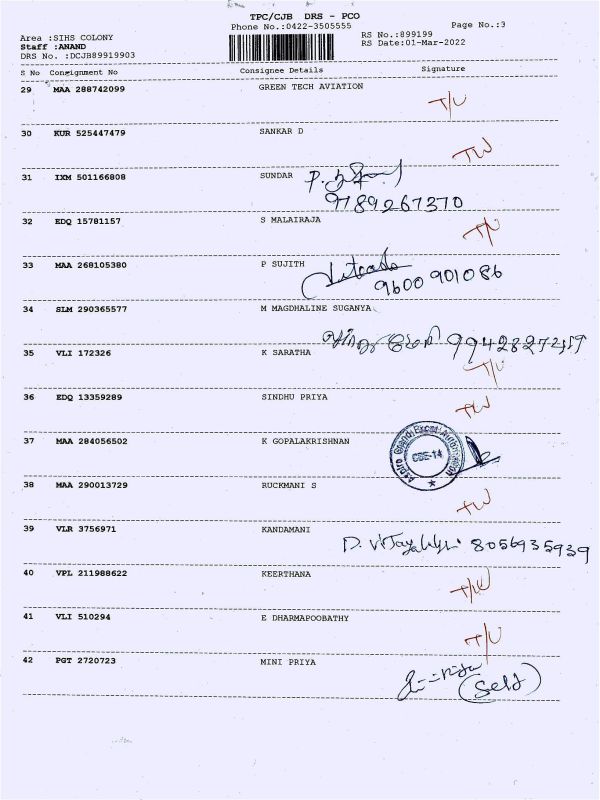 TPC/CJB DRS - PCO
Phone No.:0422-3505555
Page No.:3
Area :SIHS COLONY
RS No.:899199
Staff :ANAND
RS Date:01-Mar-2022
DRS No. :DCJB89919903
S No Consignment No Consignee Details Signature
29 MAA 288742099 GREEN TECH AVIATION
T/U
30 KUR 525447479 SANKAR D
31 IXM 501166808 SUNDAR
9789267370
32 EDQ 15781157 S MALAIRAJA
T/U
33 MAA 268105380 P SUJITH
9600 901086
34 SLM 290365577 M MAGDHALINE SUGANYA
35 VLI 172326 K SARATHA
T/U
36 EDQ 13359289 SINDHU PRIYA
37 MAA 284056502 K GOPALAKRISHNAN
CBE-14
38 MAA 290013729 RUCKMANI S
39 VLR 3756971 KANDAMANI
8056935939
40 VPL 211988622 KEERTHANA
41 VLI 510294 E DHARMAPOOBATHY
T/U
42 PGT 2720723 MINI PRIYA
(Self)